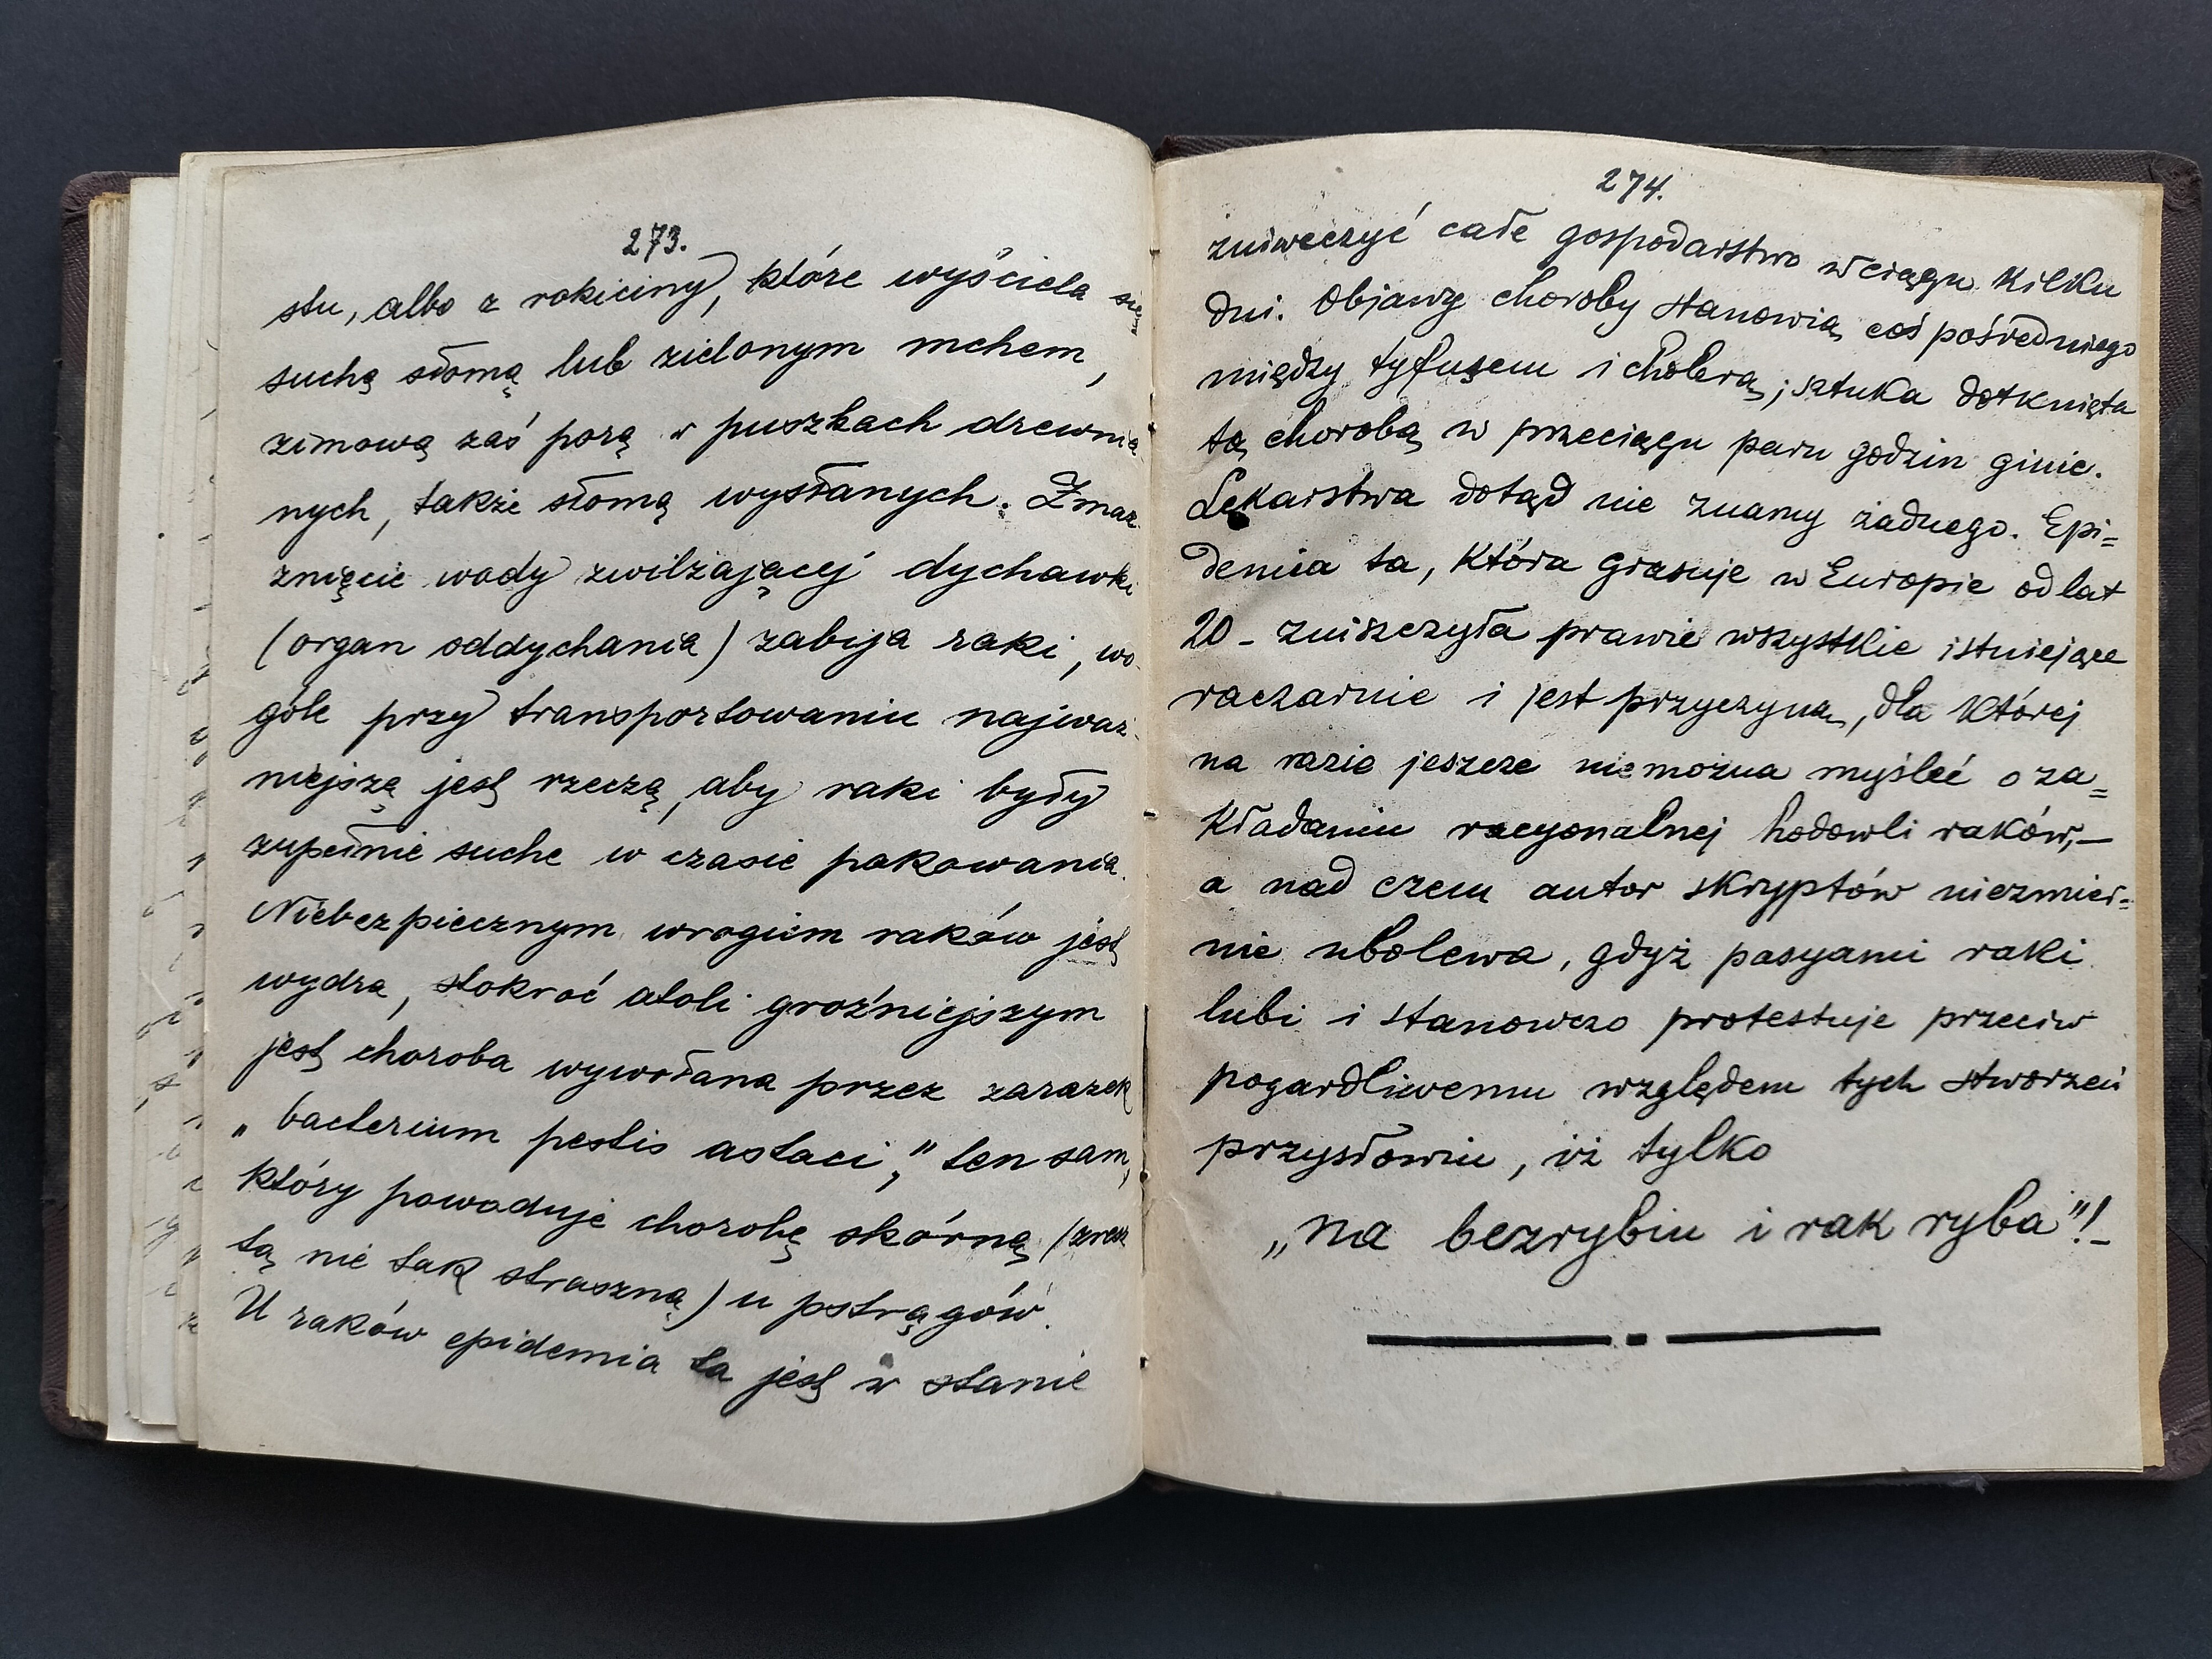 273.
stu, albo z rokiciny, które wyściela się
suchą słomą lub zielonym mchem,
zimową zaś porą w puszkach drewnia
nych, także słomą wysłanych. Zmar
znięcie wody zwilżającej dychawki
(organ oddychania) zabija raki, wo-
góle przy transportowaniu najważ-
niejszą jest rzeczą, aby raki były
zupełnie suche w czasie pakowania.
Niebezpiecznym wrogiem raków jest
wydra, stokroć atoli groźniejszym
jest choroba wywołana przez zarazek
„bacterium pestis astaci," ten sam,
który powoduje chorobę skórną (zresz
tą nie tak straszną) u pstrągów.
U raków epidemia ta jest w stanie
274.
zniweczyć całe gospodarstwo w ciągu kilku
dni. Objawy choroby stanowią coś pośredniego
między tyfusem i cholerą; sztuka dotknięta
tą chorobą w przeciągu paru godzin ginie.
Lekarstwa dotąd nie znamy żadnego. Epi=
demia ta, która grasuje w Europie od lat
20 - zniszczyła prawie wszystkie istniejące
raczarnie i jest przyczyną, dla której
na razie jeszcze niemożna myśleć o za=
kładaniu racyonalnej hodowli raków,—
a nad czem autor skryptów niezmier=
nie ubolewa, gdyż pasyami raki
lubi i stanowczo protestuje przeciw
pogardliwemu względem tych stworzeń
przysłowiu, iż tylko
„na bezrybiu i rak ryba"!-